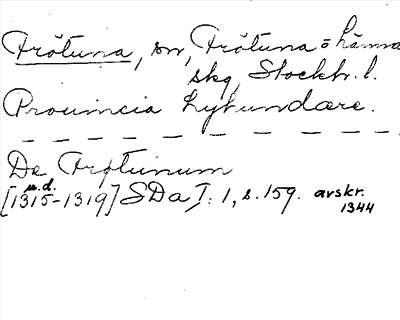 Frötuna, sn, Frötuna o Länna
skg, Stockh. l.
Prouincia Lyhundære.
De Frøtunum
u.d.
[1315-1319] SDa I: 1, s. 159. avskr.
1344